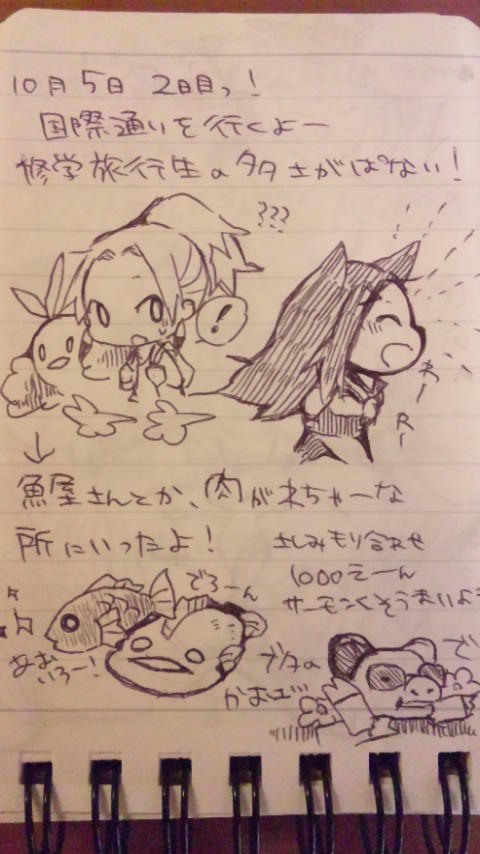 10月5日 2日目っ!
国際通りを行くよー
修学旅行生の多さがぱない!
???
!
わー
R-
↓
魚屋さんとか、肉がネちゃーな
所にいったよ!
さしみもり合わせ
1000えーん
サーモンくそうまいよ
でろーん
あおいろー!
ブタの
かお
で